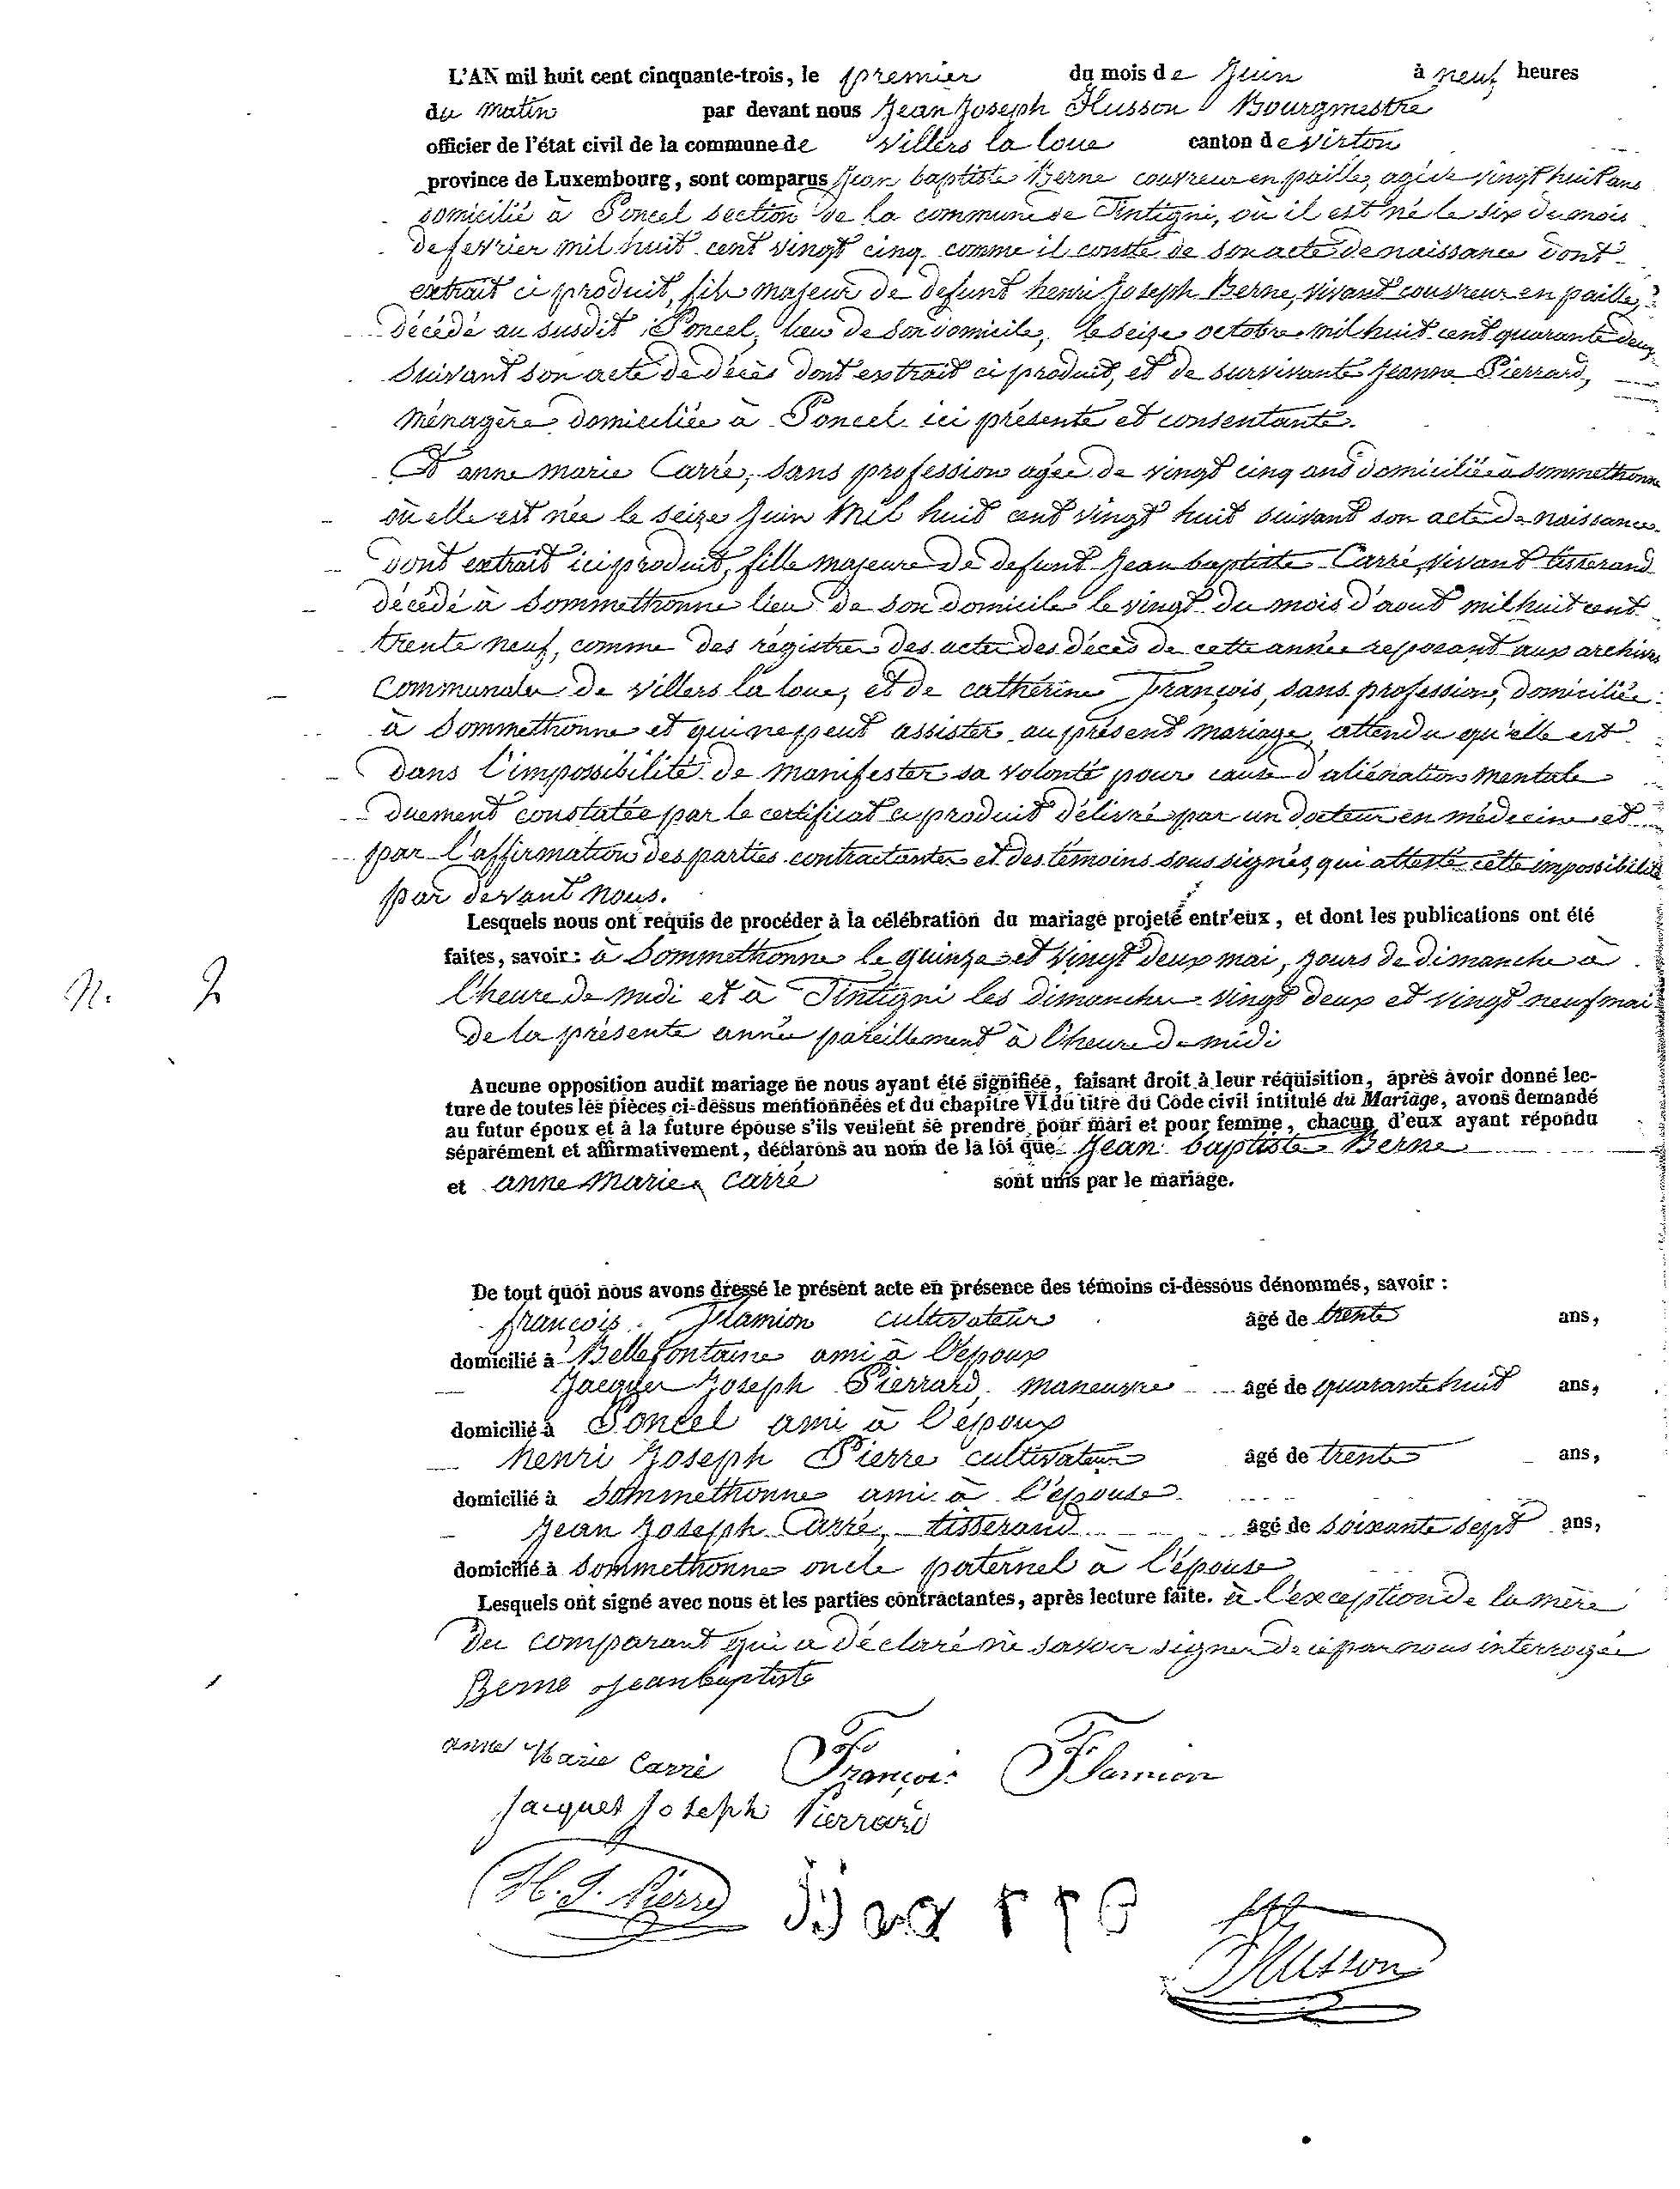 L'AN mil huit cent cinquante-trois, le premier du mois de Juin à neuf heures
du matin par devant nous Jean Joseph Husson Bourgmestre
officier de l'état civil de la commune de Villers la loue canton de Virton
province de Luxembourg, sont comparus Jean baptiste Berne couvreur en paille, agé de vingt huit ans
domicilié à Poncel section de la commune de Tintigni, où il est né le six du mois
de fevrier mil huit cent vingt cinq comme il conste de son acte de naissance dont
extrait ci produit, fils majeur de defunt henri Joseph Berne, vivant couvreur en paille,
décédé au susdit Poncel, lieu de son domicile, le seize octobre mil huit cent quarante deux
suivant son acte de décès dont extrait ci produit, et de survivante Jeanne Pierrard,
ménagère domiciliée à Poncel ici présente et consentante.
Et anne marie Carré, sans profession agée de vingt cinq ans domiciliée à Sommethonne
où elle est née le seize Juin Mil huit cent vingt huit suivant son acte de naissance
dont extrait ici produit, fille majeure de defunt Jean baptiste Carré, vivant tisserand
décédé à Sommethonne lieu de son domicile le vingt du mois d'aout mil huit cent
trente neuf, comme des régistres des actes des décès de cette année reposant aux archives
Communales de Villers la loue, et de cathérine François, sans profession, domiciliée
à Sommethonne et qui ne peut assister au présent mariage, attendu qu'elle est
dans l'impossibilité de manifester sa volonté pour cause d'aliénation mentale
duement constatée par le certificat ci produit délivré par un docteur en médecine et
par l'affirmation des parties contractantes et des témoins soussignés, qui atteste cette impossibilité
par devant nous.
Lesquels nous ont requis de procéder à la célébration du mariage projeté entr'eux, et dont les publications ont été
faites, savoir: à Sommethonne le quinze et vingt deux mai, jours de dimanche à
N. 2 l'heure de midi et à Tintigni les dimanches vingt deux et vingt neuf mai
de la présente année pareillement à l'heure de midi
Aucune opposition audit mariage ne nous ayant été signifiée, faisant droit à leur réquisition, après avoir donné lec-
ture de toutes les pièces ci-dessus mentionnées et du chapitre VI du titre du Code civil intitulé du Mariage, avons demandé
au futur époux et à la future épouse s'ils veulent se prendre pour mari et pour femme, chacun d'eux ayant répondu
séparément et affirmativement, déclarons au nom de la loi que Jean baptiste Berne
et anne Marie Carré sont unis par le mariage.
De tout quoi nous avons dressé le présent acte en présence des témoins ci-dessous dénommés, savoir :
françois Flamion cultivateur âgé de trente ans,
domicilié à Bellefontaine ami à l'époux
Jacques Joseph Pierrard, maneuvre âgé de quarante huit ans,
domicilié à Poncel ami à l'époux
henri Joseph Pierre cultivateur âgé de trente ans,
domicilié à Sommethonne ami à l'épouse
Jean Joseph Carré, tisserand âgé de soixante sept ans,
domicilié à Sommethonne oncle paternel à l'épouse
Lesquels ont signé avec nous et les parties contractantes, après lecture faite. à l'exception de la mère
du comparant qui a déclaré ne savoir signer de ce par nous interrogée
Berne Jean baptiste
anne Marie Carré François Flamion
Jacques Joseph Pierrard
H. J. Pierre JJ carré
Husson